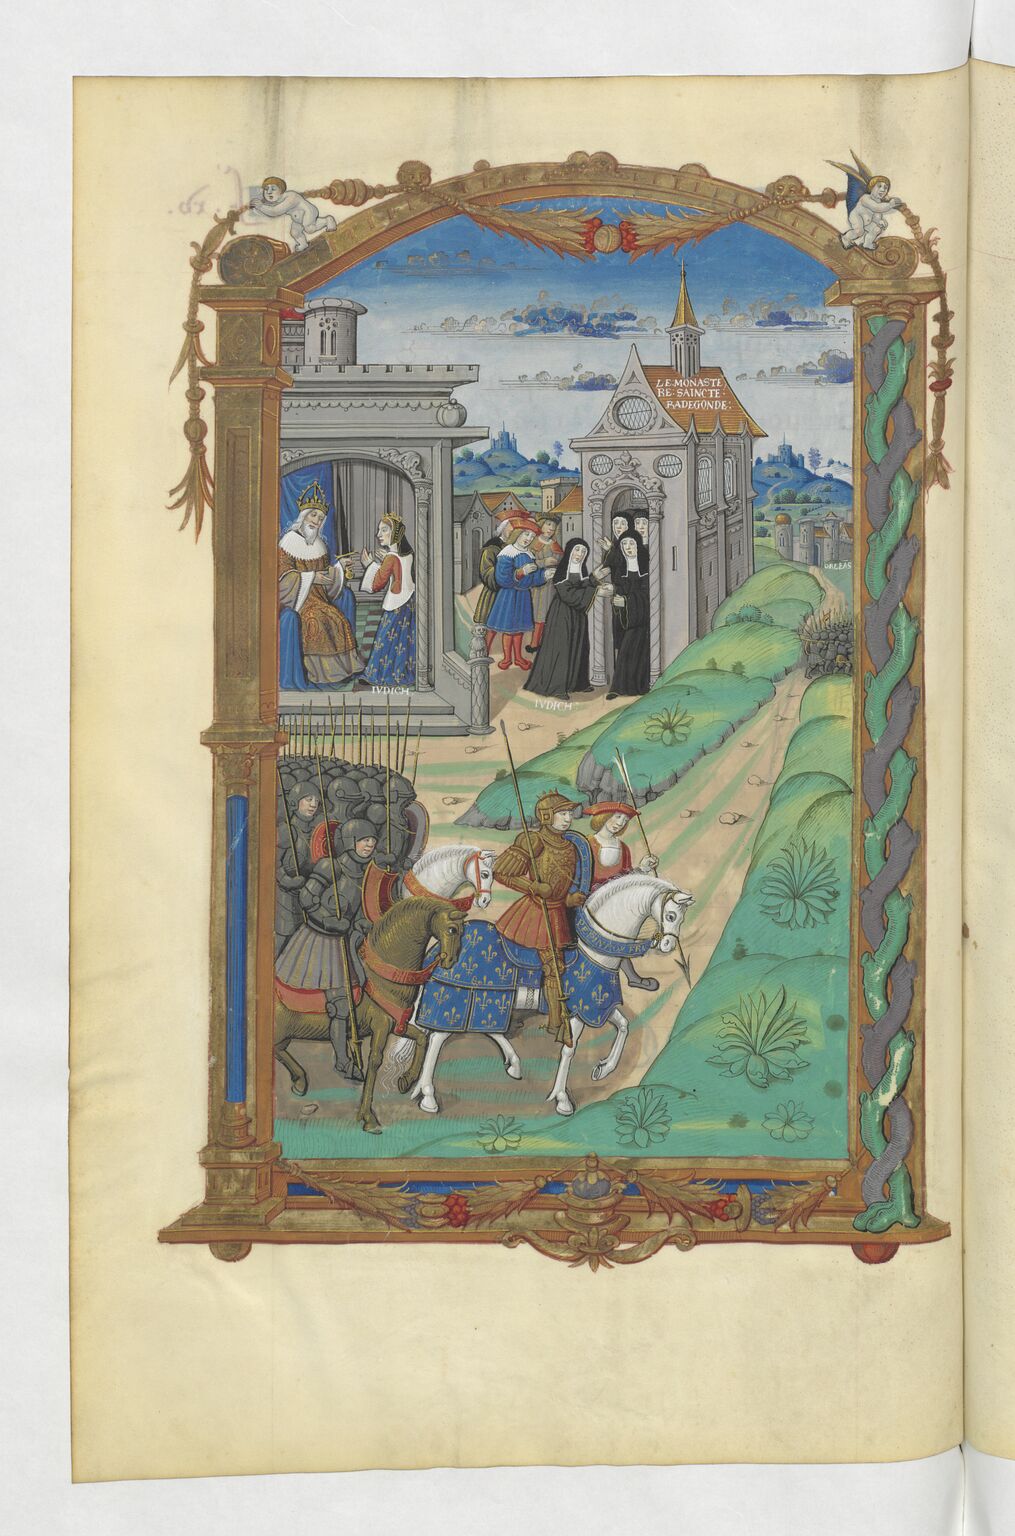 LE·MONASTE
RE·SAINCTE·
RADEGONDE·
ORLEÃS
IVDICH
IVDICH